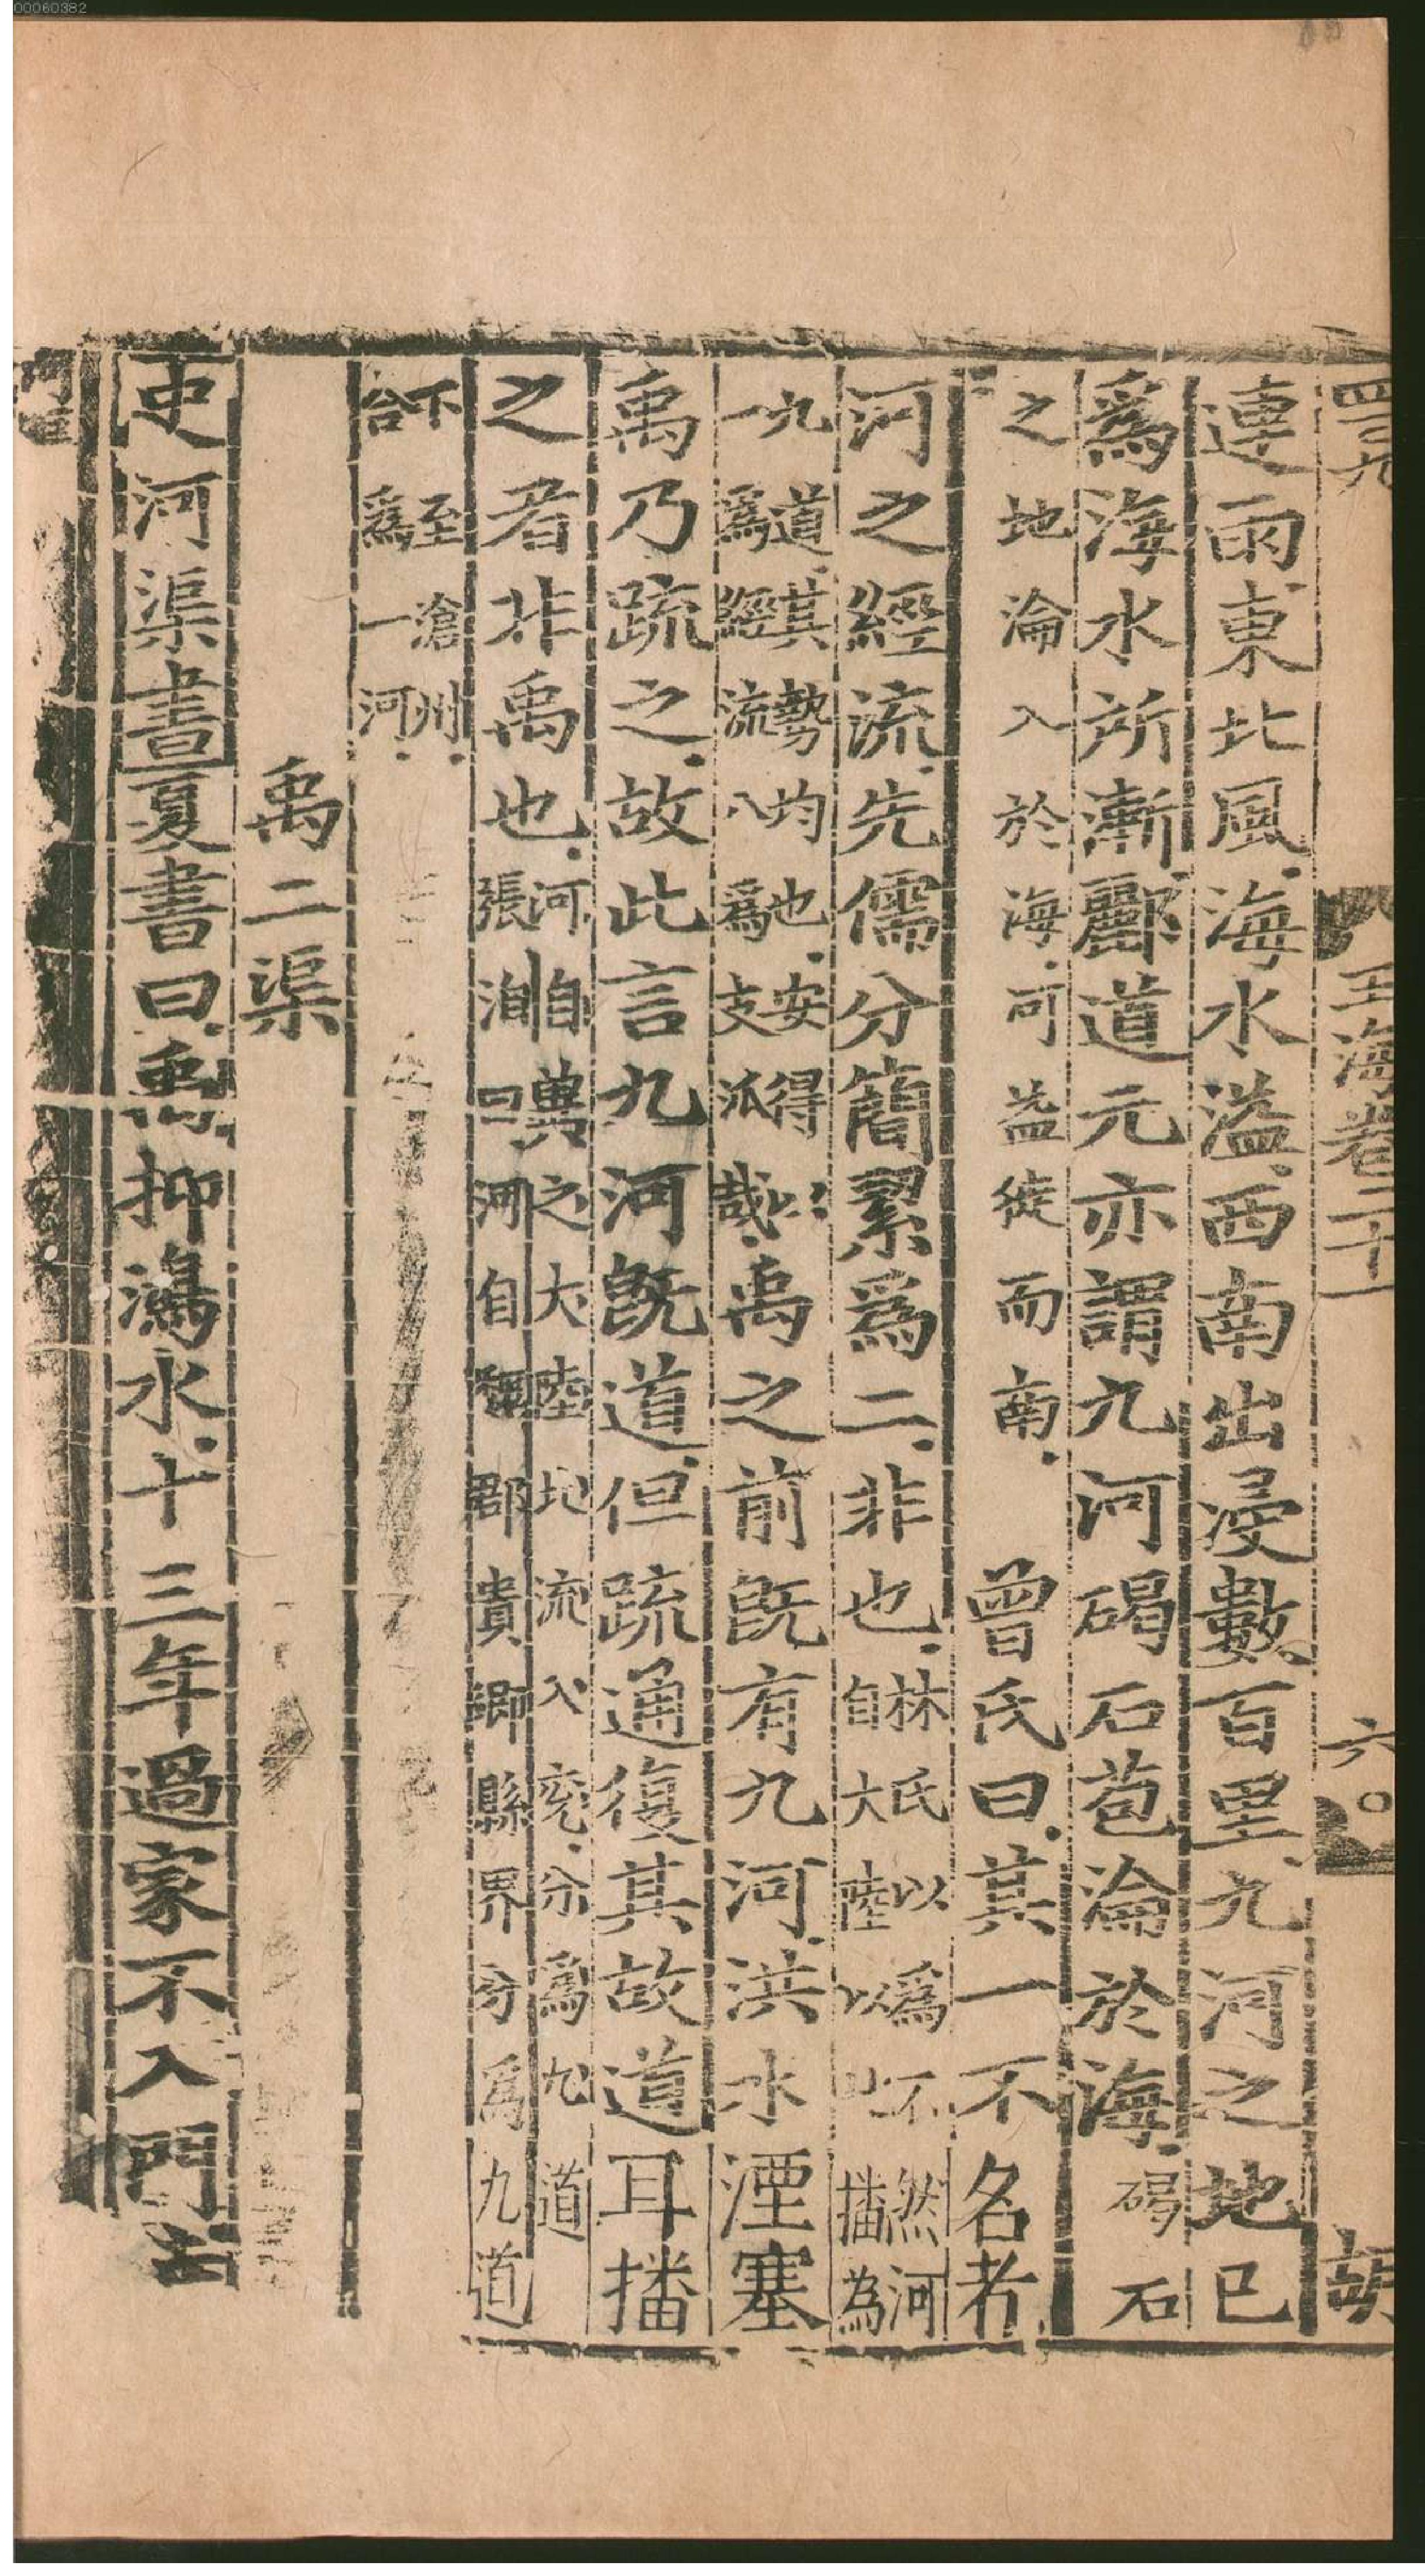 00060382
四百九 玉海卷二十一 六〇 胡
連雨東北風海水溢西南出浸數百里九河之地已
爲海水所漸酈道元亦謂九河碣石苞淪於海碣石
之地淪入於海可益徙而南 曾氏曰其一不名者
河之經流先儒分簡絜爲二非也林氏以爲不然河自大陸以北播為
九道其勢均也安得以一爲經流八爲支派哉禹之前旣有九河洪水湮塞
禹乃疏之故此言九河旣道但疏通復其故道耳播
之者非禹也河自兾之大陸地流入兖分爲九道張洎曰河自魏郡貴鄉縣界分爲九道
下至滄州合爲一河
禹二渠
史河渠書夏書曰禹抑鴻水十三年過家不入門